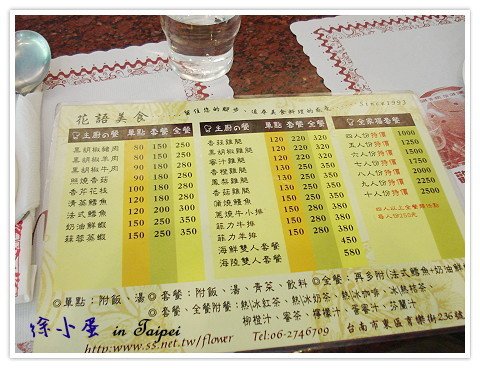 花語美食
Since1993
主廚の餐 單點 套餐 全餐
黑胡椒豬肉 80 150 250
黑胡椒羊肉 80 150 250
黑胡椒牛肉 90 160 260
照燒香菇 90 160 260
香芹花枝 100 180 280
清蒸鱈魚 100 180 280
法式鱈魚 120 200 300
奶油鮮蝦 150 250 350
蒜蓉蒸蝦 150 250 350
主廚の餐 單點 套餐 全餐
香菇雞腿 120 220 320
黑胡椒雞腿 120 220 320
蜜汁雞腿
香橙雞腿
鳳梨雞腿
香菇鱈魚
蒲燒鱈魚
蔥燒牛小排
菲力牛排 150 280 380
菲力羊排 150 280 380
海鮮雙人套餐 450
海陸雙人套餐 580
全家福套餐
四人份特價 1000
五人份特價 1250
六人份特價 1500
七人份特價 1750
八人份特價 2000
九人份特價 2250
十人份特價 2500
四人以上全餐隨你點
每人份250元
◎單點：附飯、湯 ◎套餐：附飯、湯、青菜、飲料 ◎全餐：再多附(法式鱈魚+奶油鮮蝦
◎套餐、全餐附餐：熱/冰紅茶、熱/冰奶茶、熱/冰咖啡、冰桔茶
柳橙汁、蜜茶、檸檬汁、蜂蜜汁、芬蘭汁
http:www.ss.net.tw/flower Tel:06-2746709 台南市東區東樂街236號
徐小蛋 in Taipei